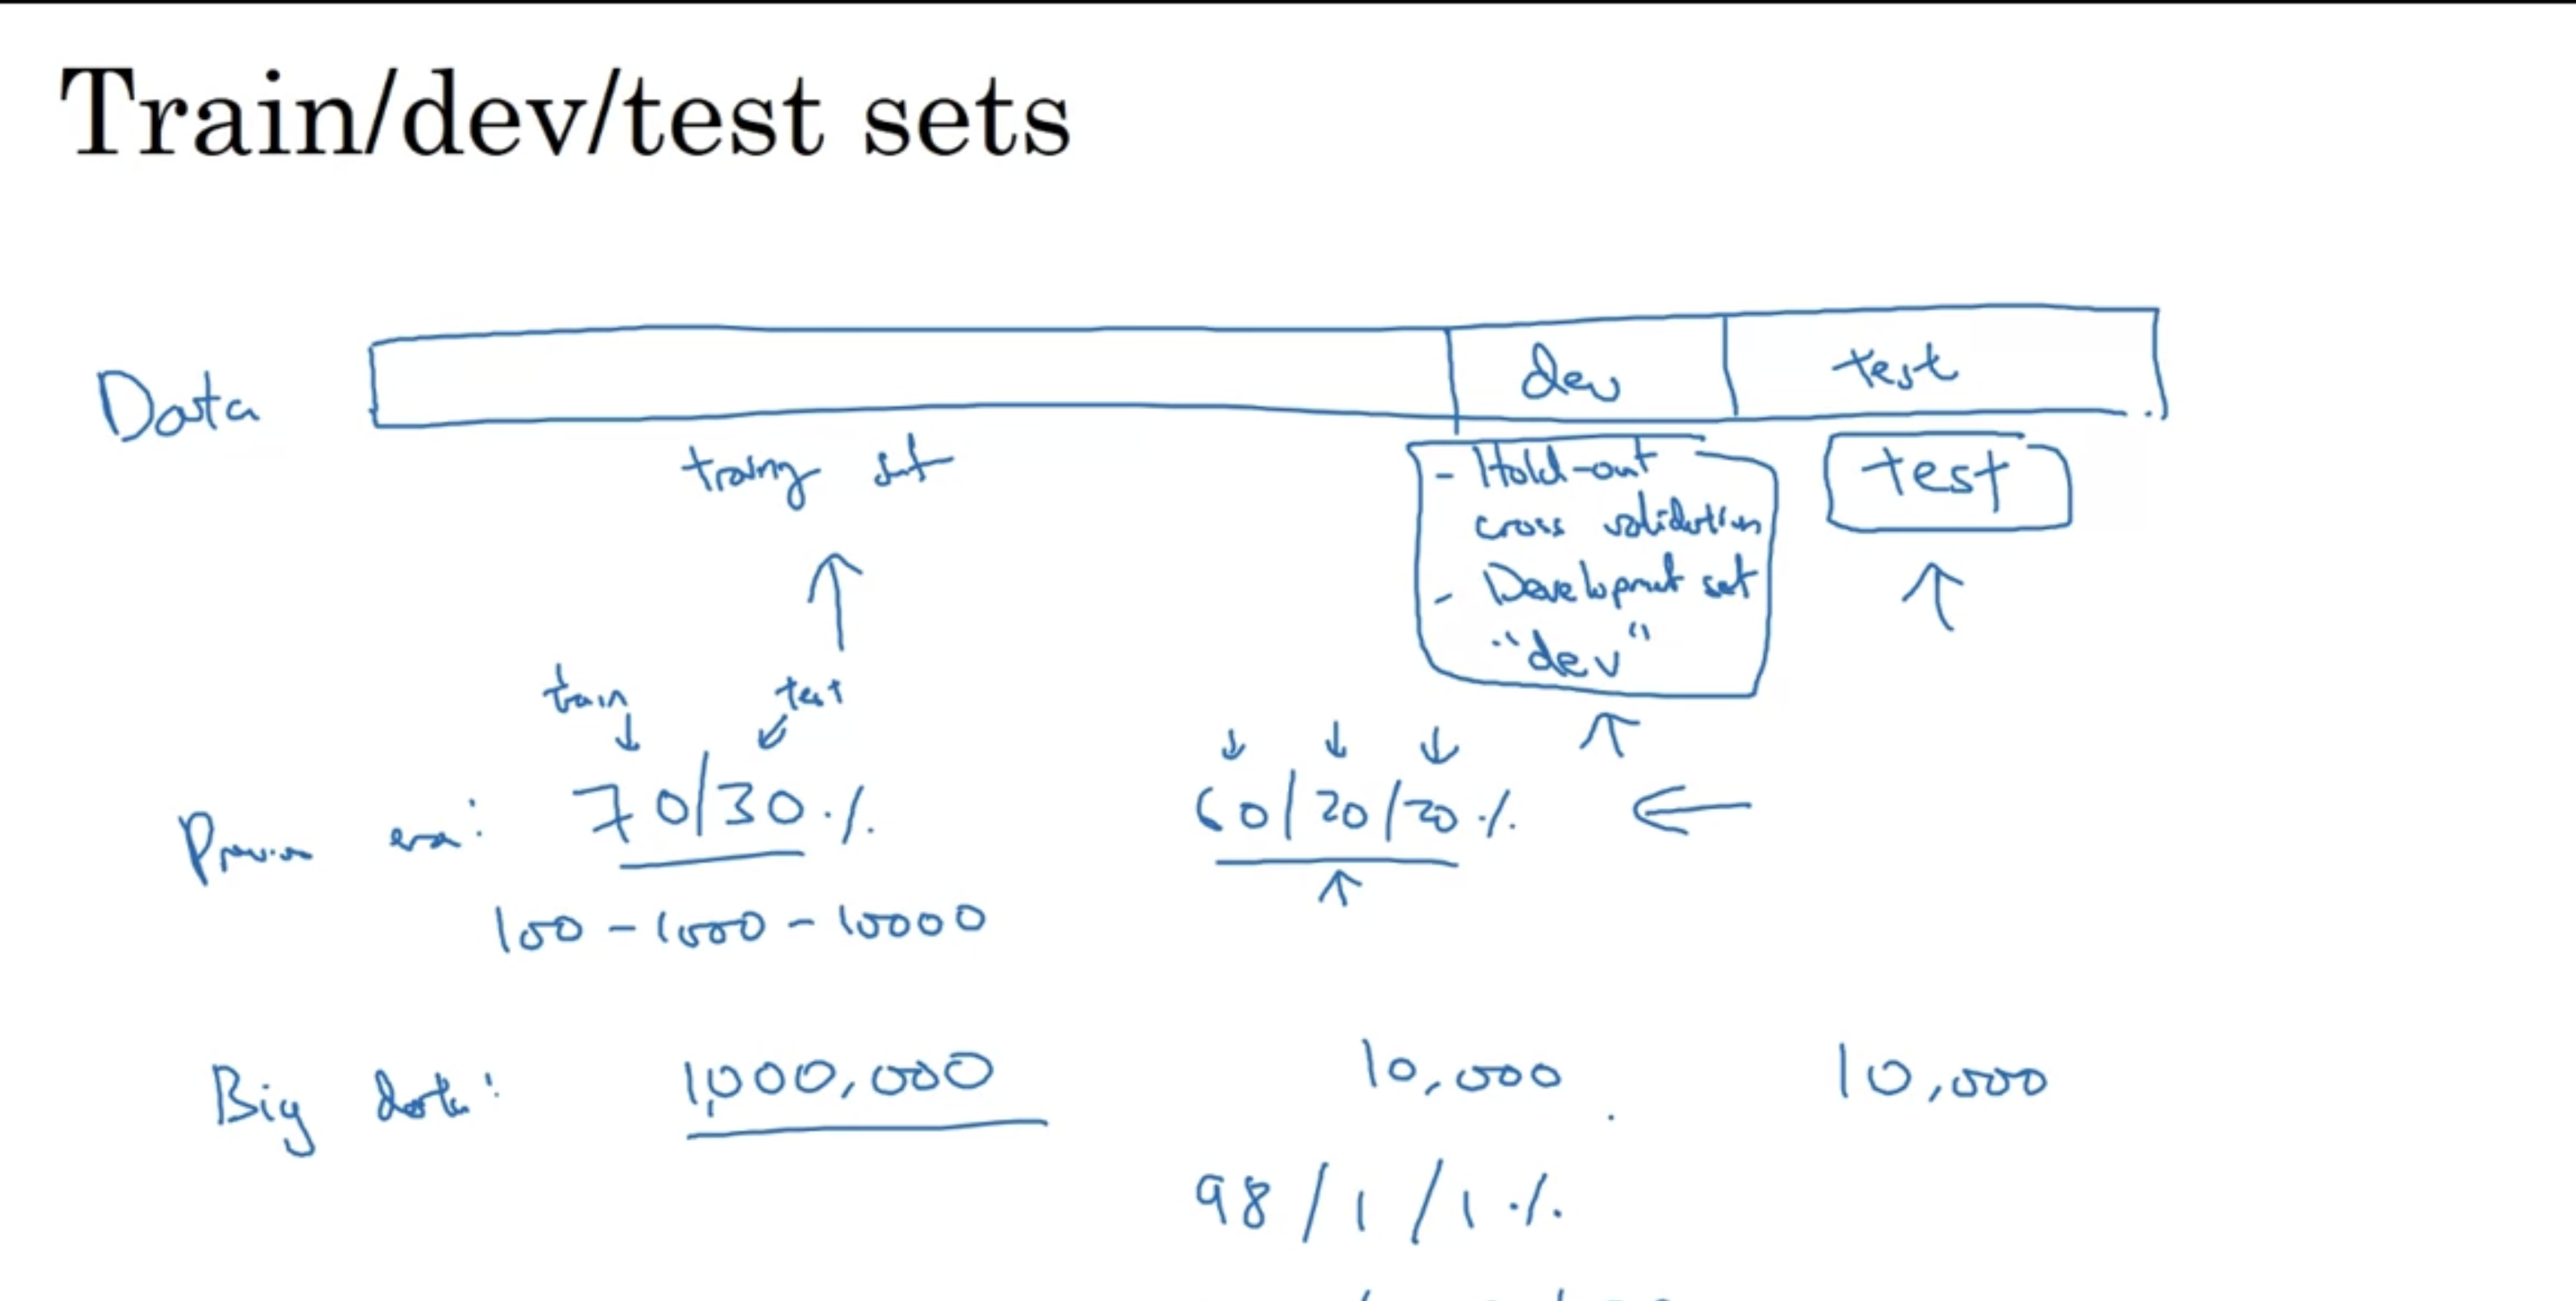 Train/dev/test sets
Data
dev
test
training set
- Hold-out
cross validation
- Development set
"dev"
test
train
test
Previous era:
70/30%
60/20/20%
100 - 1000 - 10000
Big data:
1,000,000
10,000
10,000
98/1/1%